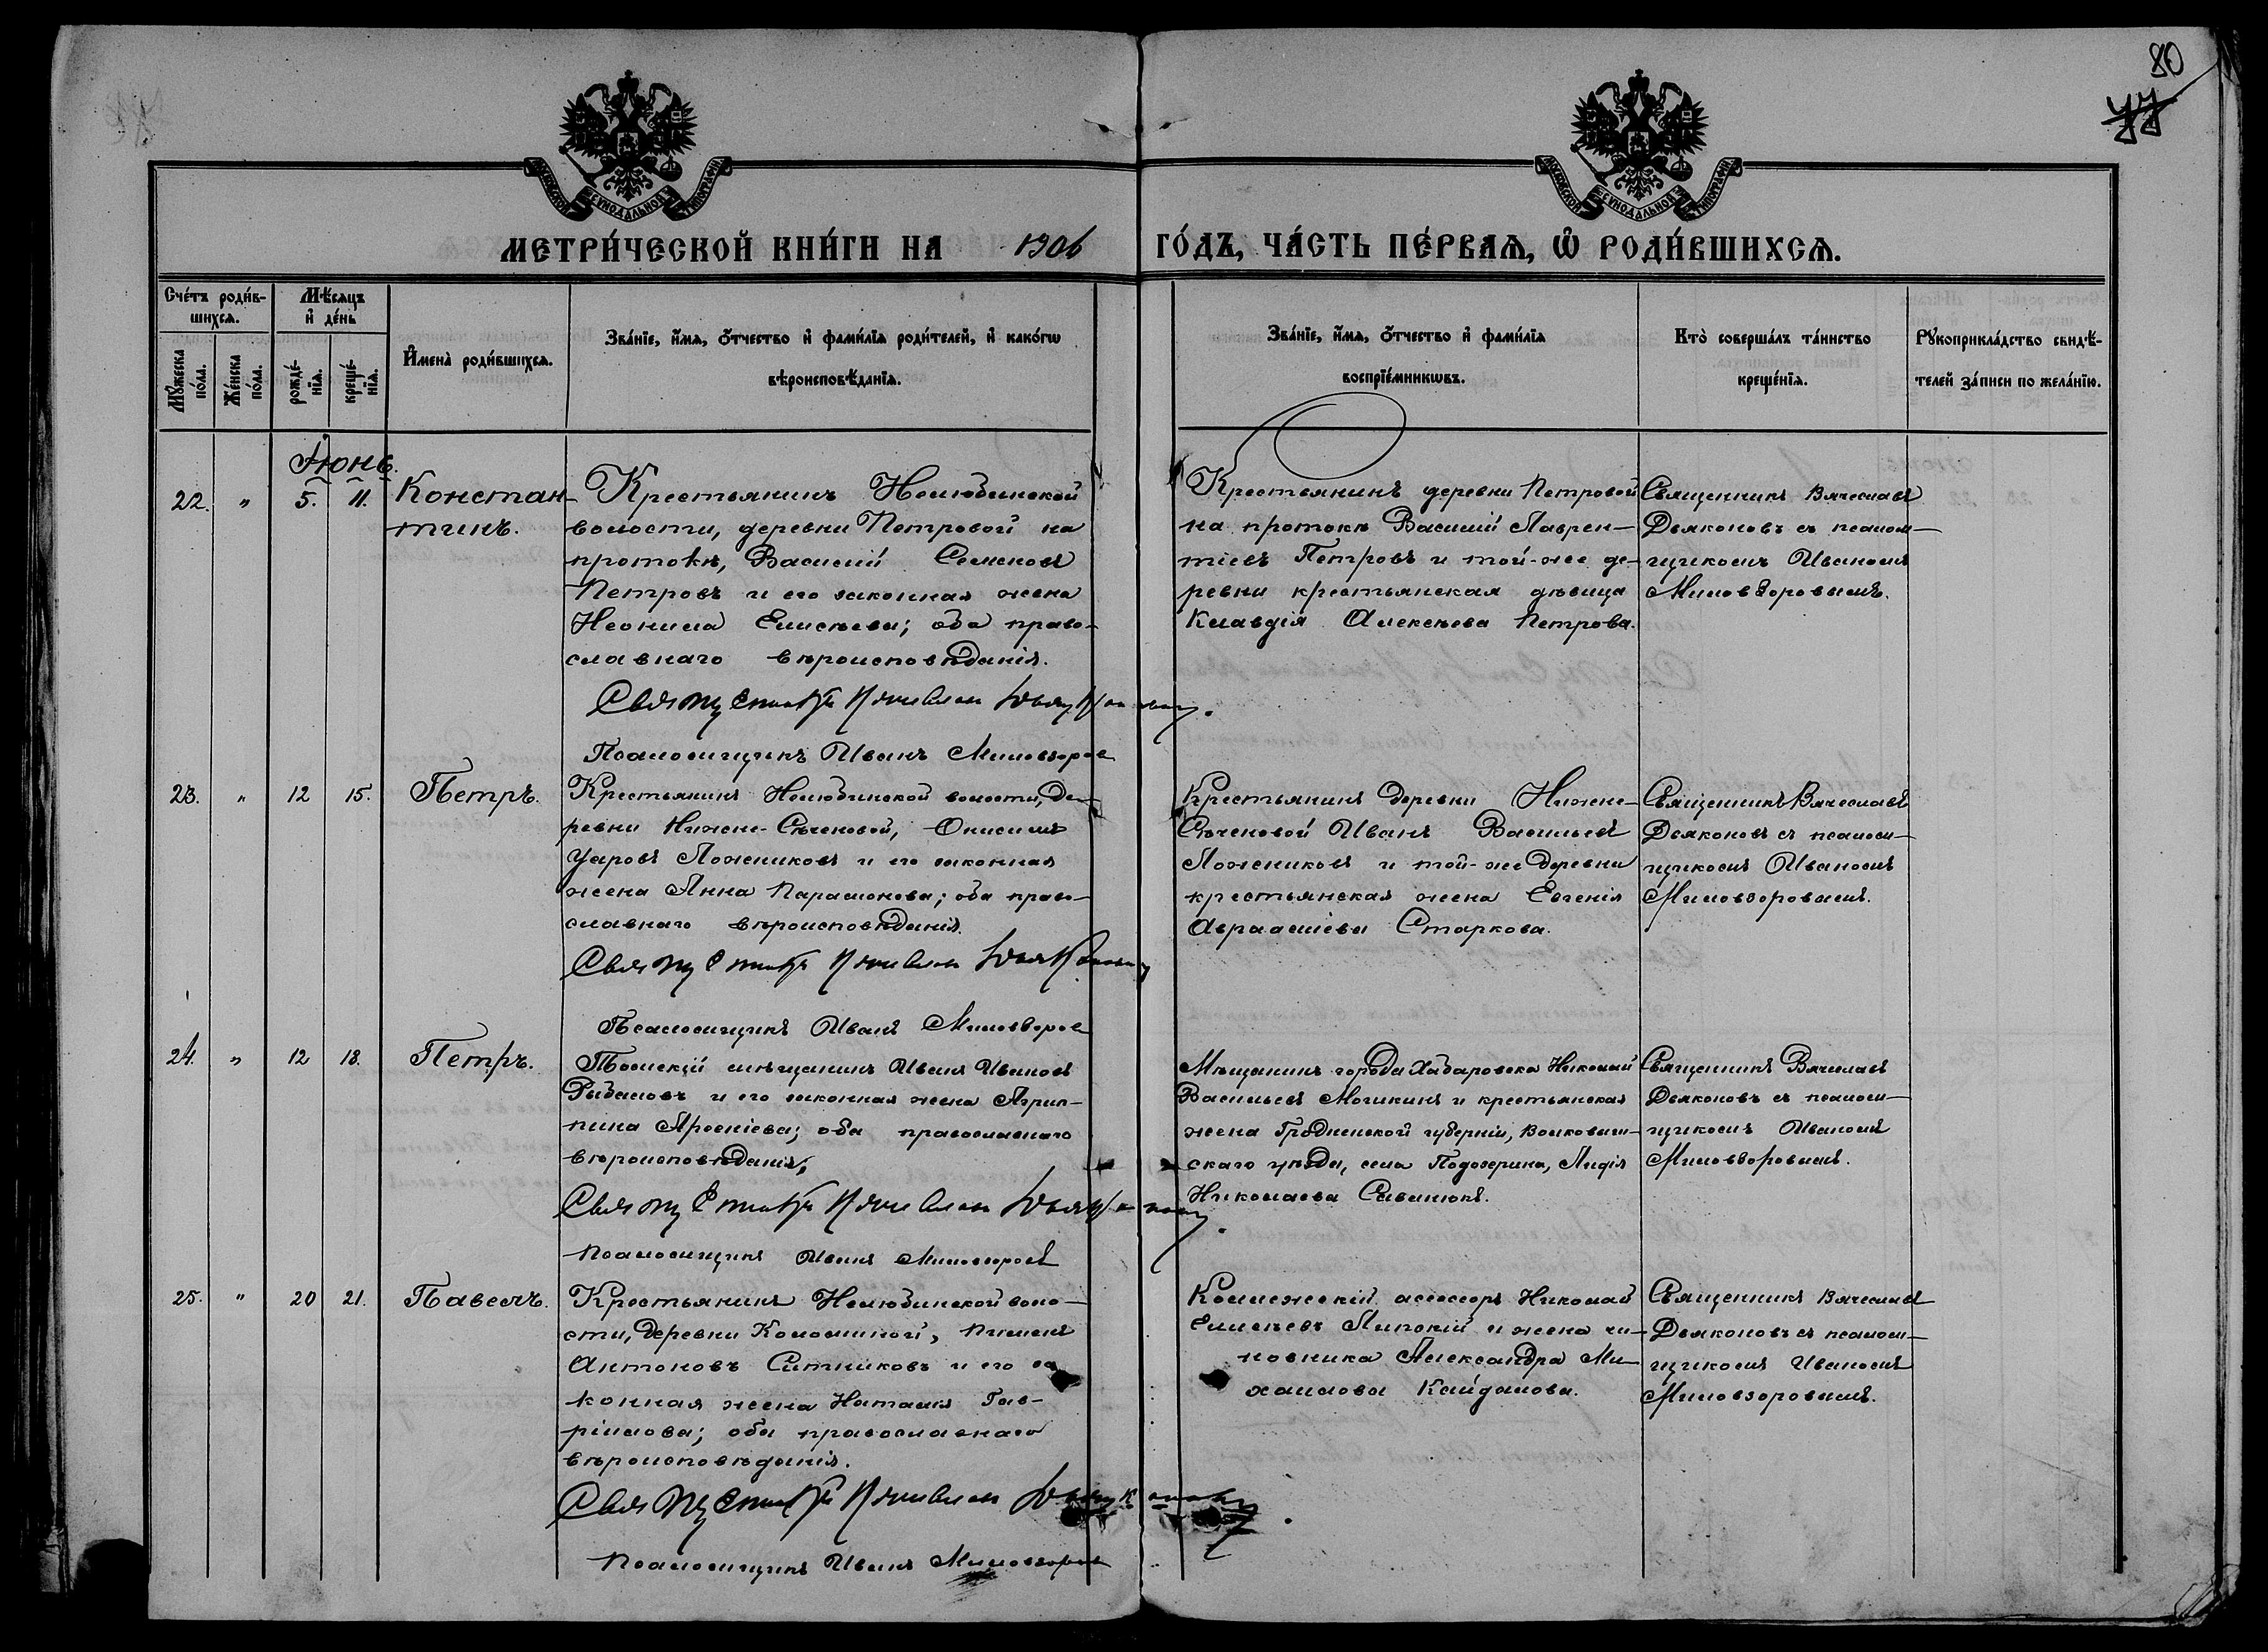 80
77
МОСКОВСКОЙ СѴНОДАЛЬНОЙ ТИПОГРАФІИ
МОСКОВСКОЙ СѴНОДАЛЬНОЙ ТИПОГРАФІИ
МЕТРИ́ЧЕСКОЙ КНИ́ГИ НА 1906 ГО́ДЪ, ЧА́СТЬ ПЕ́РВАѦ, Ѽ РОДИ́ВШИХСѦ.
Сче́тъ роди́в-
шихсѧ.
Мѣ́сѧцъ
и҆ де́нь
Мꙋ́жеска
по́ла.
Же́нска
по́ла.
рожде́-
нїѧ.
креще́-
нїѧ.
И҆мена̀ роди́вшихсѧ.
Зва́нїе, и҆́мѧ, ѻ҆́тчество и҆ фами́лїѧ роди́телей, и҆ како́гѡ
вѣроисповѣ́данїѧ.
Зва́нїе, и҆́мѧ, ѻ҆́тчество и҆ фами́лїѧ
воспрїе́мникѡвъ.
Кто̀ соверша́лъ та́инство
креще́нїѧ.
Рꙋкоприкла́дство свидѣ́-
телей за́писи по жела́нїю.
Іюнь.
22. " 5. 11. Констан-
тинъ.
Крестьянинъ Нелюбинской
волости, деревни Петровой на
протокѣ, Василій Семеновъ
Петровъ и его законная жена
Неонила Елисѣева; оба право-
славнаго вѣроисповѣданія.
Псаломщикъ Иванъ Миловзоровъ
Крестьянинъ деревни Петровой
на протокѣ Василій Лаврен-
тіевъ Петровъ и той-же де-
ревни крестьянская дѣвица
Клавдія Алексѣева Петрова.
Священникъ Вячеславъ
Дьяконовъ съ псалом-
щикомъ Иваномъ
Миловзоровымъ.
23. " 12 15. Петръ.
Крестьянинъ Нелюбинской волости, де-
ревни Нижне-Сѣченовой, Онисимъ
Уаровъ Ложниковъ и его законная
жена Анна Парамонова; оба право-
славнаго вѣроисповѣданія.
Псаломщикъ Иванъ Миловзоровъ
Крестьянинъ деревни Нижне-
Сѣченовой Иванъ Васильевъ
Ложниковъ и той-же деревни
крестьянская жена Евгенія
Авраамієва Старкова.
Священникъ Вячеславъ
Дьяконовъ съ псалом-
щикомъ Иваномъ
Миловзоровымъ.
24. " 12 18. Петръ.
Томскій мѣщанинъ Иванъ Ивановъ
и его законная жена Агрип-
пина Арсеніева; оба православнаго
вѣроисповѣданія;
Псаломщикъ Иванъ Миловзоровъ
Мѣщанинъ города Хабаровска Николай
Васильевъ и крестьянская
жена Гродненской губерніи, Волковыс-
скаго уѣзда, села Лидія
Николаева Саванюкъ.
Священникъ Вячеславъ
Дьяконовъ съ псалом-
щикомъ Иваномъ
Миловзоровымъ.
25. " 20 21. Павелъ.
Крестьянинъ Нелюбинской воло-
сти, деревни Коломиной, Пименъ
Антоновъ Ситниковъ и его за
конная жена Наталія Гав-
ріилова; оба православнаго
вѣроисповѣданія.
Псаломщикъ Иванъ Миловзоровъ
Коллежскій ассесоръ Николай
Елисѣевъ Липскій и жена чи-
новника Александра Ми-
хаилова Кайдалова.
Священникъ Вячеславъ
Дьяконовъ съ псалом-
щикомъ Иваномъ
Миловзоровымъ.